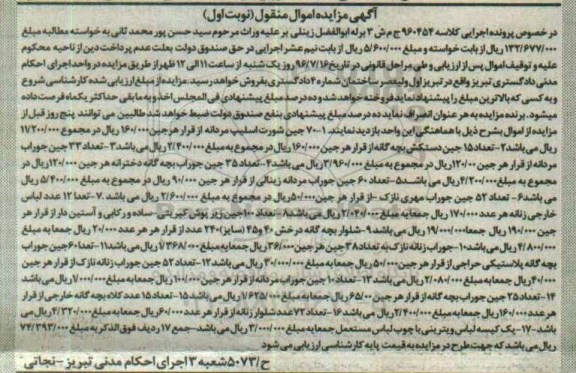 آگهی مزایده اموال منقول (نوبت اول)
در خصوص پرونده اجرایی کلاسه ۹۶۰۴۵۴ ج م ش ۳ برله ابوالفضل زینلی بر علیه وراث مرحوم سید حسن پور محمد ثانی به خواسته مطالبه مبلغ
۱۳۲/۶۷۷/۰۰۰ ریال از بابت خواسته و مبلغ ۵/۶۰۰/۰۰۰ ریال از بابت نیم عشر اجرایی در حق صندوق دولت بعلت عدم پرداخت دین از ناحیه محکوم
علیه و توقیف اموال پس از ارزیابی و طی مراحل قانونی در تاریخ ۹۶/۷/۱۶ روز یک شنبه از ساعت ۱۱ الی ۱۲ ظهر از طریق مزایده در واحد اجرای احکام
مدنی دادگستری تبریز واقع در تبریز اول ولیعصر ساختمان شماره ۴ دادگستری بفروش خواهد رسید. مزایده از مبلغ ارزیابی شده کارشناسی شروع
و به کسی که بالاترین مبلغ را پیشنهاد نماید فروخته خواهد شد و ده درصد مبلغ پیشنهادی فی المجلس اخذ و به مابقی حداکثر یکماه فرصت داده
میشود. برنده مزایده به هر عنوان انصراف نماید ده درصد مبلغ پیشنهادی بنفع صندوق دولت ضبط خواهد شد طالبین می توانند پنج روز قبل از
مزایده از اموال بشرح ذیل با هماهنگی این واحد بازدید نمایند. ۱- ۷۰ جین شورت اسلیپ مردانه از قرار هر جین ۱۶۰/۰۰۰ ریال در مجموع ۱۷/۲۰۰/۰۰۰
ریال می باشد ۲- تعداد ۱۵ جین دستکش بچه گانه از قرار هر جین ۱۶۰/۰۰۰ ریال در مجموع به مبلغ ۲/۴۰۰/۰۰۰ ریال می باشد ۳- تعداد ۳۳ جین جوراب
مردانه از قرار هر جین ۱۲۰/۰۰۰ ریال در مجموع به مبلغ ۳/۹۶۰/۰۰۰ ریال می باشد ۴- تعداد ۳۵ جین جوراب بچه گانه دخترانه هر جین ۱۲۰/۰۰۰ ریال در
مجموع به مبلغ ۴/۲۰۰/۰۰۰ ریال می باشد ۵- تعداد ۶۰ جین جوراب مردانه زینالی از قرار هر جین ۹۰/۰۰۰ ریال در مجموع به مبلغ ۵/۴۰۰/۰۰۰ ریال
می باشد ۶- تعداد ۵۲ جین جوراب مهری نازک - از قرار هر جین ۵۰/۰۰۰ ریال در مجموع به مبلغ ۲/۶۰۰/۰۰۰ ریال می باشد. ۷- تعدا ۱۲ عدد لباس
خارجی زنانه هر عدد ۱۷۰/۰۰۰ ریال جمعا به مبلغ ۲/۰۴۰/۰۰۰ ریال می باشد ۸- تعداد ۱۰۰ جین زیر پوش کبریتی - ساده و رکابی و آستین دار از قرار هر
جین ۱۹۰/۰۰۰ ریال جمعا ۱۹/۰۰۰/۰۰۰ ریال می باشد ۹- شلوار بچه گانه درخش ۴۰ و ۴۵ (سایز) ۲۴۰ عدد از قرار هر هر عدد ۲۰/۰۰۰ ریال به مبلغ
۴/۸۰۰/۰۰۰ ریال می باشد ۱۰- جوراب زنانه نازک به تعداد ۳۸ جین هر جین ۳۶/۰۰۰ ریال جمعا به مبلغ ۱/۳۶۸/۰۰۰ ریال می باشد ۱۱- تعداد ۶۰ جین جوراب
بچه گانه پلاستیکی حراجی از قرار هر جین ۵۰/۰۰۰ ریال جمعا به مبلغ ۳۰/۰۰۰/۰۰۰ ریال می باشد ۱۲- تعداد ۵۲ جین جوراب زنانه نازک از قرار هر جین
۴۰/۰۰۰ ریال جمعا به مبلغ ۲/۰۸۰/۰۰۰ ریال می باشد ۱۳- تعداد ۱۰ جین جوراب مردانه از قرار هر جین ۱۰۰/۰۰۰ ریال جمعا به مبلغ ۱/۰۰۰/۰۰۰ ریال می باشد
۱۴- تعداد ۲۵ جین جوراب بچه گانه از قرار هر جین ۶۵/۰۰۰ ریال جمعا به مبلغ ۱/۶۲۵/۰۰۰ ریال می باشد ۱۵- تعداد ۱۵ عدد کلاه بچه گانه خارجی از قرار
هر عدد ۱۶۰/۰۰۰ ریال جمعا به مبلغ ۲/۴۰۰/۰۰۰ ریال می باشد ۱۶- تعداد ۷۲ عدد شلوار زنانه از قرار هر عدد ۶۰/۰۰۰ ریال جمعا به مبلغ ۴/۳۲۰/۰۰۰ ریال می
باشد ۱۷- یک کیسه لباس ویترینی با چوب لباس مستعمل جمعا به مبلغ ۳/۰۰۰/۰۰۰ ریال می باشد - جمع ۱۷ ردیف فوق الذکر به مبلغ ۷۴/۳۹۳/۰۰۰
ریال می باشد که جهت طرح در مزایده به قیمت پایه کارشناسی ارزیابی می شود
ح/۵۰۷۳ شعبه ۳ اجرای احکام مدنی تبریز - نجاتی